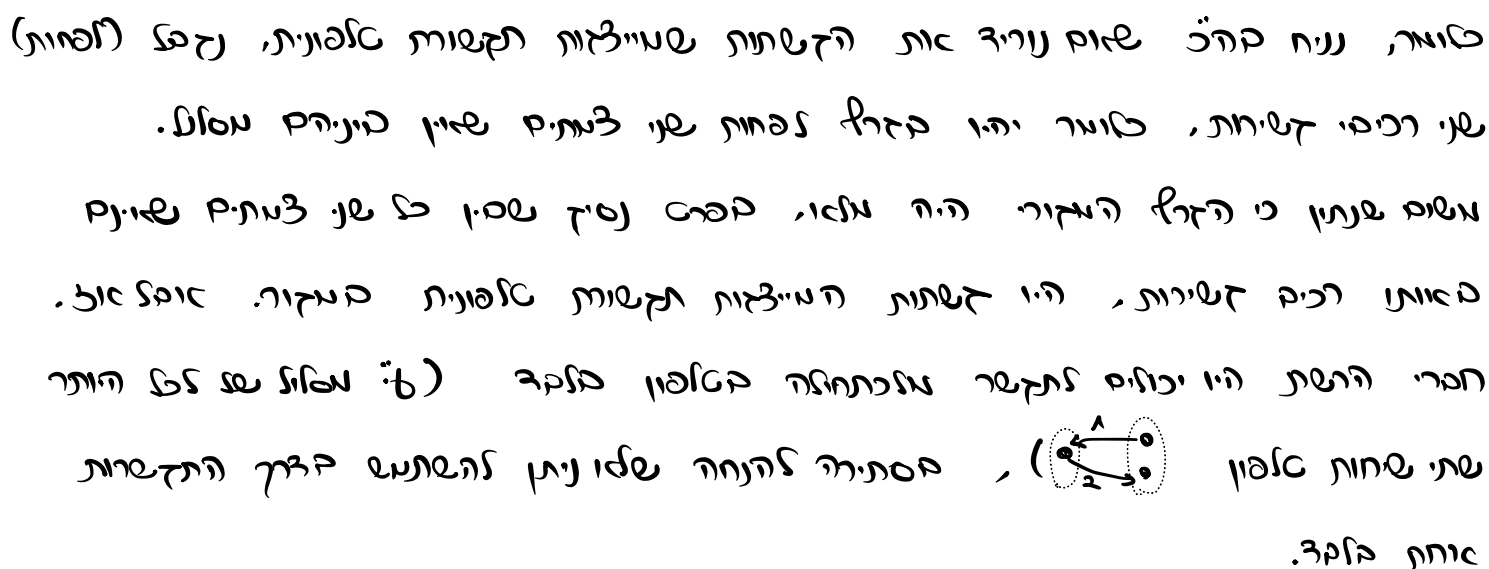 כלומר, נניח בה"כ שאם נוריד את הקשתות שמייצגות תקשורת טלפונית, נקבל (לפחות)
שני רכיבי קשירות, כלומר יהיו בגרף לפחות שני צמתים שאין ביניהם מסלול.
משום שנתון כי הגרף המקורי היה מלא, בפרט נסיק שבין כל שני צמתים שאינם
באותו רכיב קשירות, היו קשתות המייצגות תקשורת טלפונית במקור. אבל אז,
חברי הרשת היו יכולים לתקשר מלכתחילה בטלפון בלבד (ע"י מסלול של לכל היותר
שתי שיחות טלפון 1 2), בסתירה להנחה שלא ניתן להשתמש בדרך התקשרות
אחת בלבד.